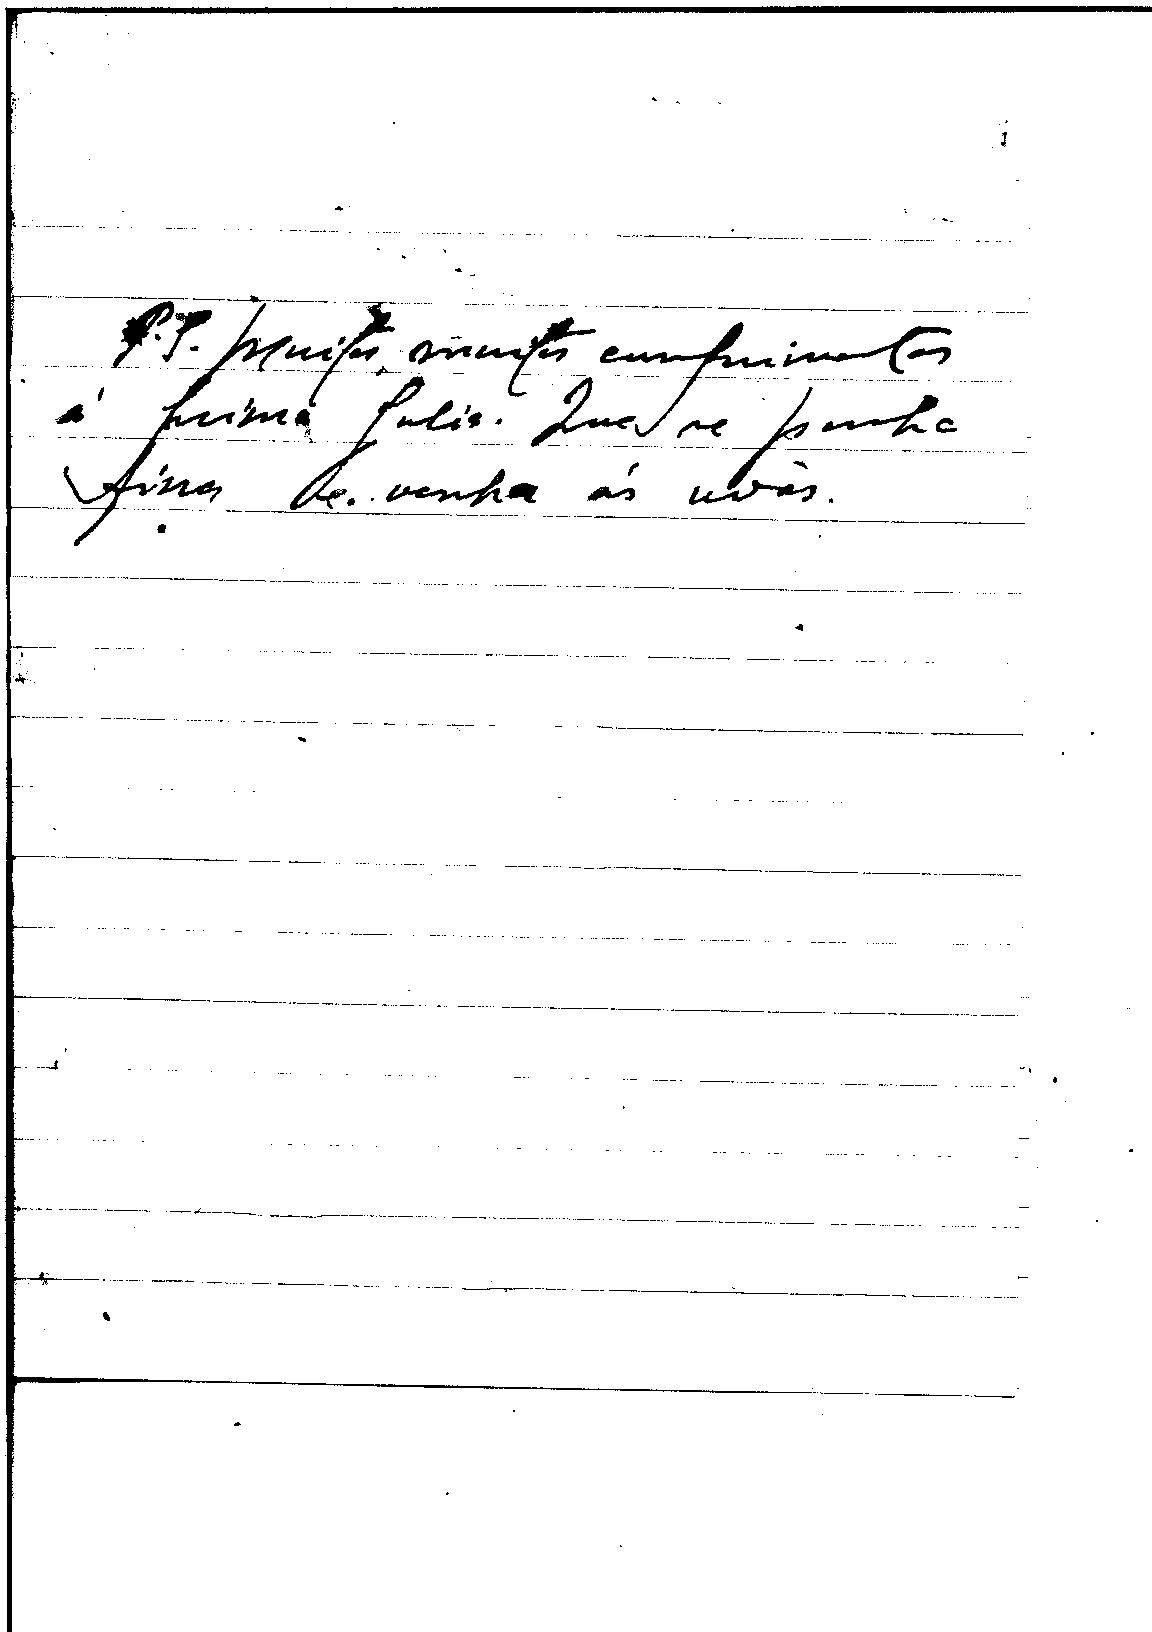 P.S. Muitos, muitos cumprimentos
á prima Julia. Que se ponha
fina e venha ás uvas.